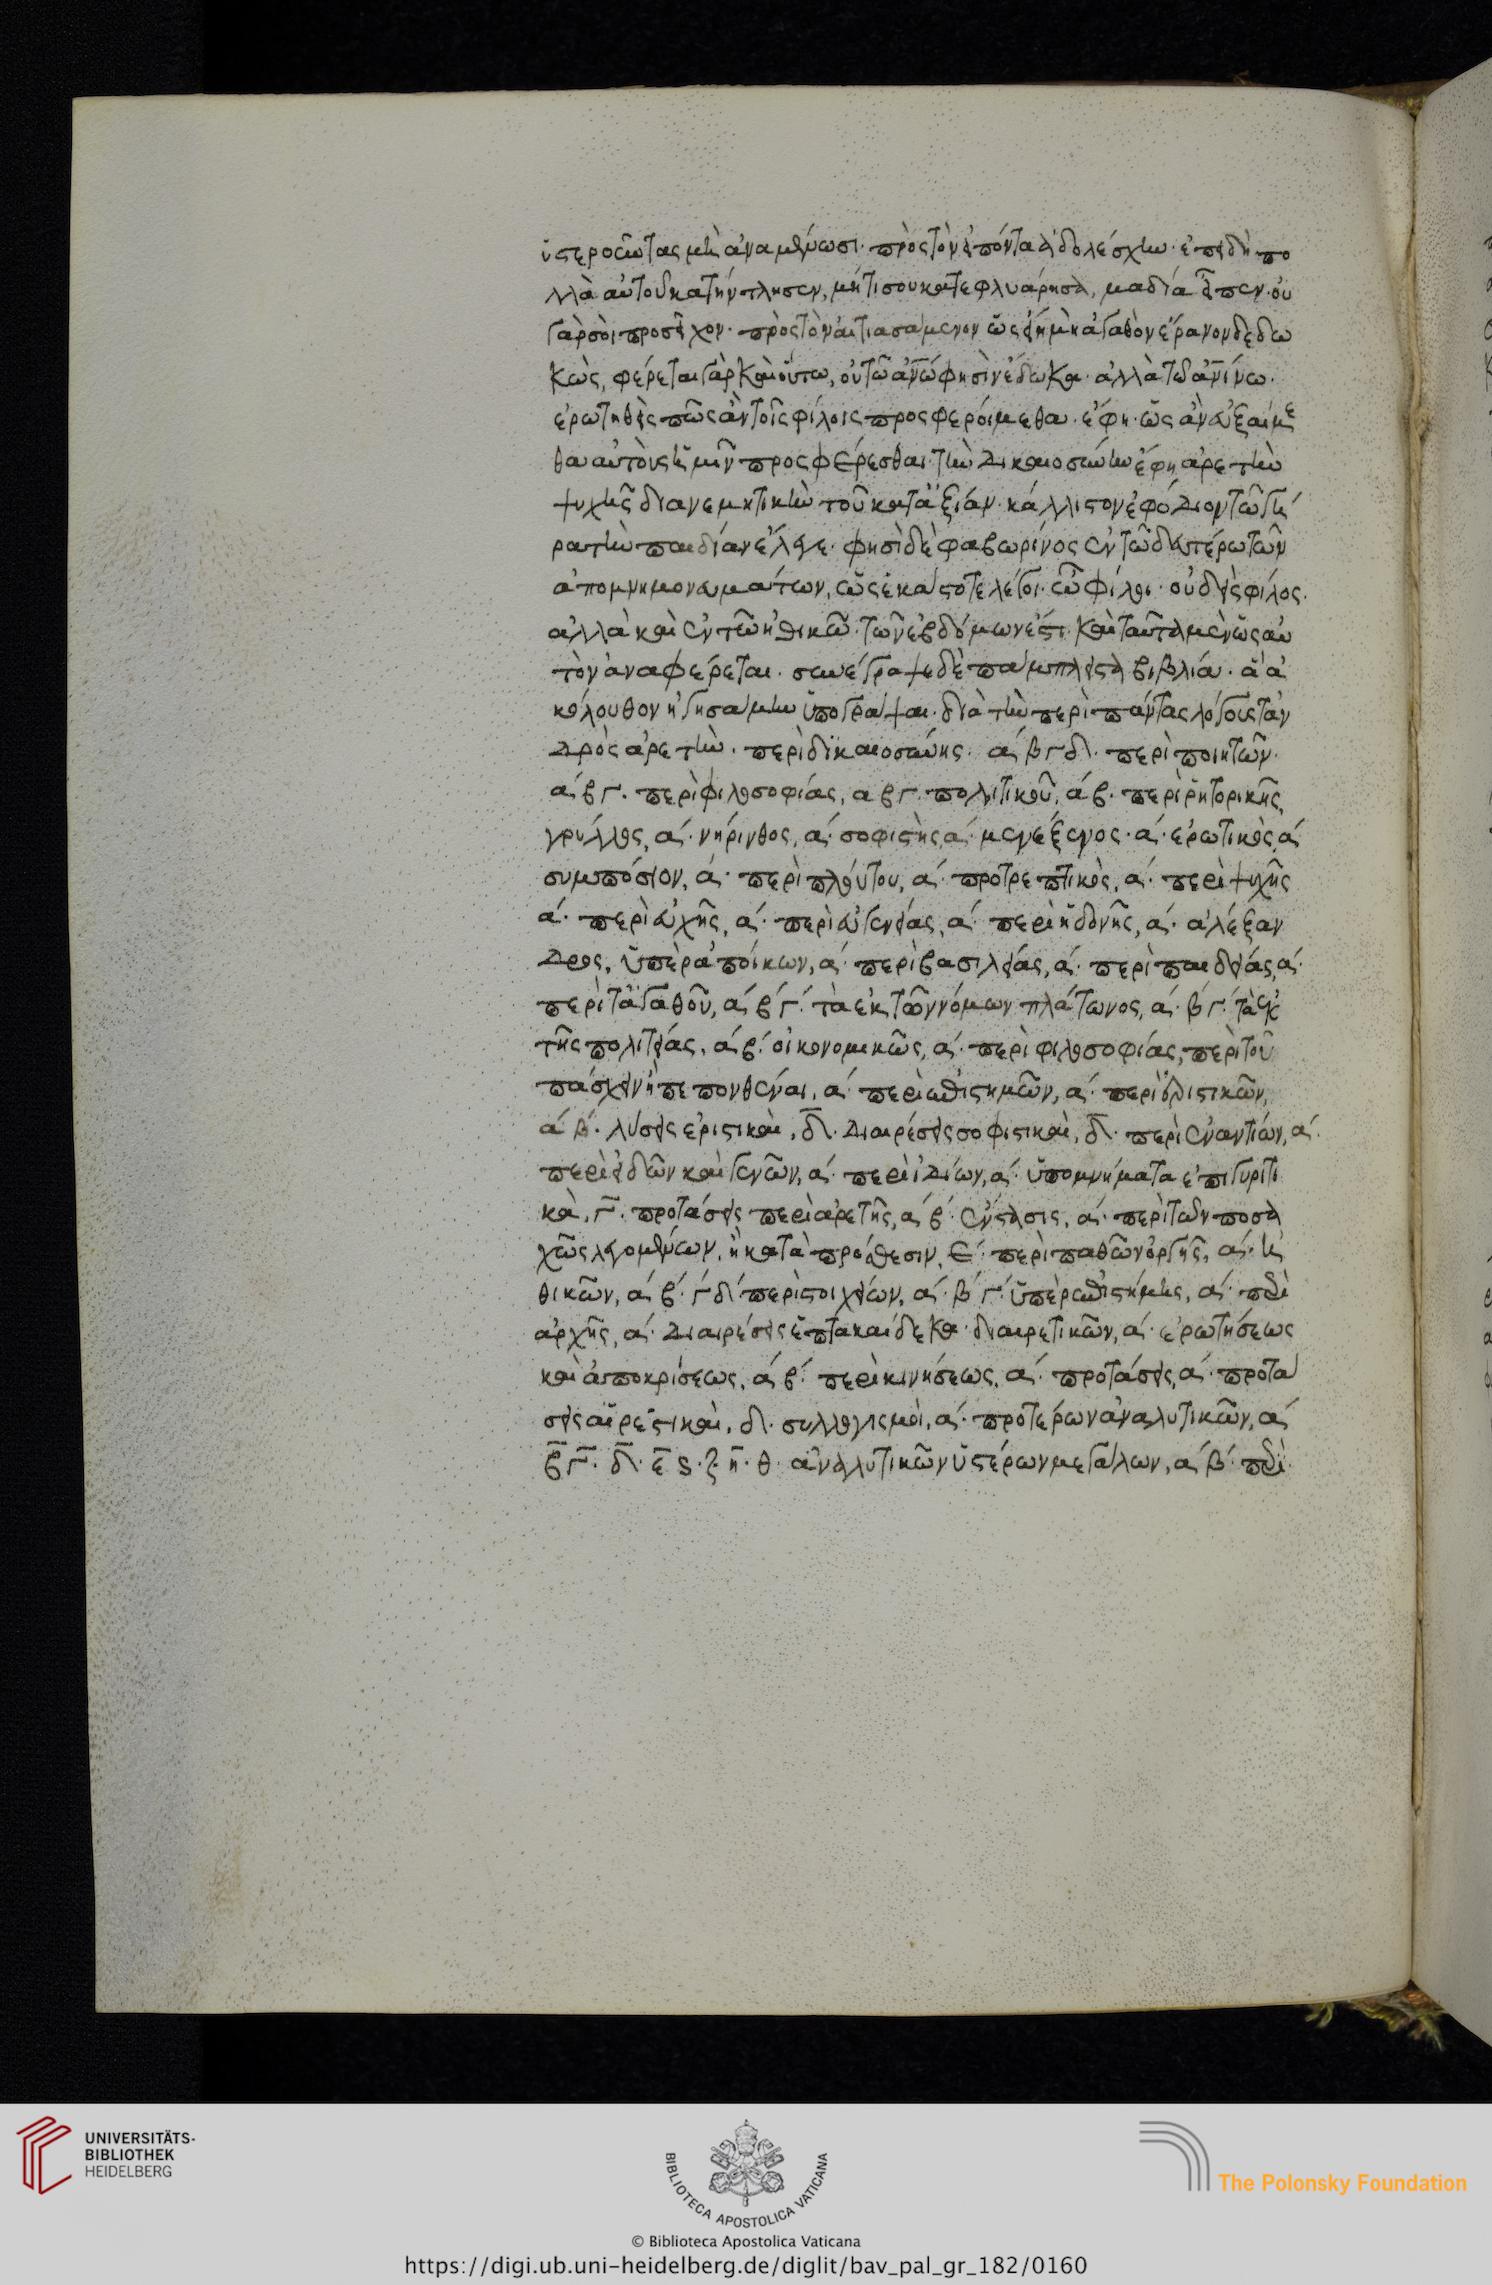 ὑστεροῦντας μὴ ἀναμένωσι· πρὸς τὸν εἰπόντα ἀδολέσχην· ἐπειδὴ πο
λλὰ αὐτοῦ κατήντλησεν, μήτι σου κατεφλυάρησα, μαδία εἶπεν· οὐ
γὰρ σὸι προσεῖχον· πρὸς τὸν αἰτιασάμενον ὡς εἴη μὴ ἀγαθὸν ἔρανον δεδω
κὼς, φέρεται γὰρ καὶ οὕτω, οὐ τῶ ἀνῶ φησὶν ἔδωκα· ἀλλὰ τῶ ἀνίνω·
ἐρωτηθεὶς πῶς ἂν τοῖς φίλοις προσφεροίμεθα· ἔφη· ὡς ἂν εὐξαίμε
θα αὐτοὺς ἡμῖν προσφέρεσθαι· τὴν δικαιοσύνην ἔφη ἀρετὴν
ψυχῆς διανεμητικὴν τοῦ κατ' ἀξίαν· κάλλιστον ἐφόδιον τῶ γή
ρα τὴν παιδίαν ἔλεγε· φησὶ δὲ φαβωρίνος ἐν τῶ δευτέρω τῶν
ἀπομνημονευμάτων, ὡς ἑκάστοτε λέγοι· ὦ φίλοι· οὐδεὶς φίλος·
ἀλλὰ καὶ ἐν τῶ ἠθικῶ· τῶν ἑβδόμων ἐστι· καὶ ταῦτα μὲν ὡς αὐ
τὸν ἀναφέρεται· συνέγραψε δὲ πάμπλειστα βιβλία· ἃ ἀ
κόλουθον ἡγησάμην ὑπογράψαι· διὰ τὴν περὶ πάντας λόγους τἀν
δρὸς ἀρετὴν· περὶ δικαιοσύνης· α´ β γ δ· περὶ ποιητῶν·
α´ β γ· περὶ φιλοσοφίας, α β γ· πολιτικοῦ, α´ β· περὶ ῥητορικῆς
γρύλλος, α´· νήρινθος, α´· σοφιστὴς, α´· μενεξενος· α´· ἐρωτικὸς, α´
συμπόσιον, α´· περὶ πλούτου, α´· προτρεπτικὸς, α´· περὶ ψυχῆς
α´· περὶ εὐχῆς, α´· περὶ εὐγενείας, α´· περὶ ἡδονῆς, α´· ἀλέξαν
δρος, ὑπὲρ ἀποίκων, α´· περὶ βασιλείας, α´· περὶ παιδείας, α´·
περὶ τἀγαθοῦ, α´ β´ γ´· τὰ ἐκ τῶν νόμων πλάτωνος, α´· β´ γ´· τὰ ἐκ
τῆς πολιτείας, α´ β´· οἰκονομικῶς, α´· περὶ φιλοσοφίας, περὶ τοῦ
πάσχειν ἢ πεπονθέναι, α´· περὶ ἐπιστημῶν, α´· περὶ ἐριστικῶν,
α´ β´· λύσεις ἐριστικαὶ, δ· διαιρέσεις σοφιστικαὶ, δ· περὶ ἐναντιών, α´·
περὶ εἰδῶν καὶ γενῶν, α´· περὶ ἰδίων, α´· ὑπομνήματα ἐπιγυρίτι
κὰ, γ· προτάσεις περὶ ἀρετῆς, α´ β´· ἔνστασις, α´· περὶ τῶν ποσα
χῶς λεγομένων, ἢ κατὰ πρόσθεσιν, ε´· περὶ παθῶν ὀργῆς, α´· ἠ
θικῶν, α´ β´· γ´ δ´ περὶ στοιχείων, α´· β´ γ´· ὑπὲρ ἐπιστήμης, α´· περὶ
ἀρχῆς, α´· διαιρέσεις ἑπτακαίδεκα· διαιρετικῶν, α´· ἐρωτήσεως
καὶ ἀποκρίσεως, α´ β´· περὶ κινήσεως, α´· προτάσεις, α´· προτά
σεις αἱρετικαὶ, δ· συλλογισμοὶ, α´· προτέρων ἀναλυτικῶν, α´
β γ· δ· ε ς· ζ η· θ· ἀναλυτικῶν ὑστέρων μεγάλων, α´ β´· περὶ
UNIVERSITÄTS-
BIBLIOTHEK
HEIDELBERG
BIBLIOTECA APOSTOLICA VATICANA
The Polonsky Foundation
© Biblioteca Apostolica Vaticana
https://digi.ub.uni-heidelberg.de/diglit/bav_pal_gr_182/0160